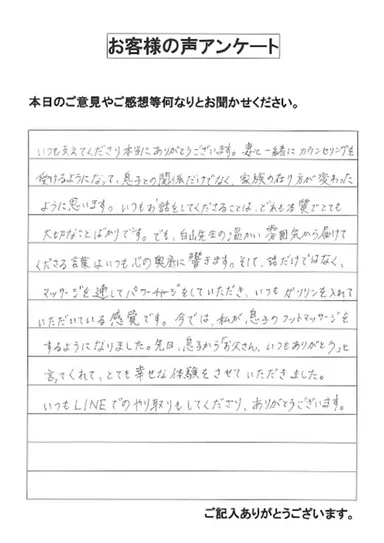 お客様の声アンケート
本日のご意見やご感想等何なりとお聞かせください。
いつも支えてくださり本当にありがとうございます。妻と一緒にカウンセリングを
受けるようになって、息子との関係だけでなく、家族の在り方が変わった
ように思います。いつもお話をしてくださることは、どれも本質でとても
大切なことばかりです。でも、白山先生の温かい雰囲気から届けて
くださる言葉はいつも心の奥底に響きます。そして、話だけではなく、
マッサージを通してパワーチャージをしていただき、いつもガソリンを入れて
いただいている感覚です。今では、私が息子のフットマッサージを
するようになりました。先日、息子から「お父さん、いつもありがとう」と
言ってくれて、とても幸せな体験をさせていただきました。
いつもLINEでのやり取りもしてくださり、ありがとうございます。
ご記入ありがとうございます。